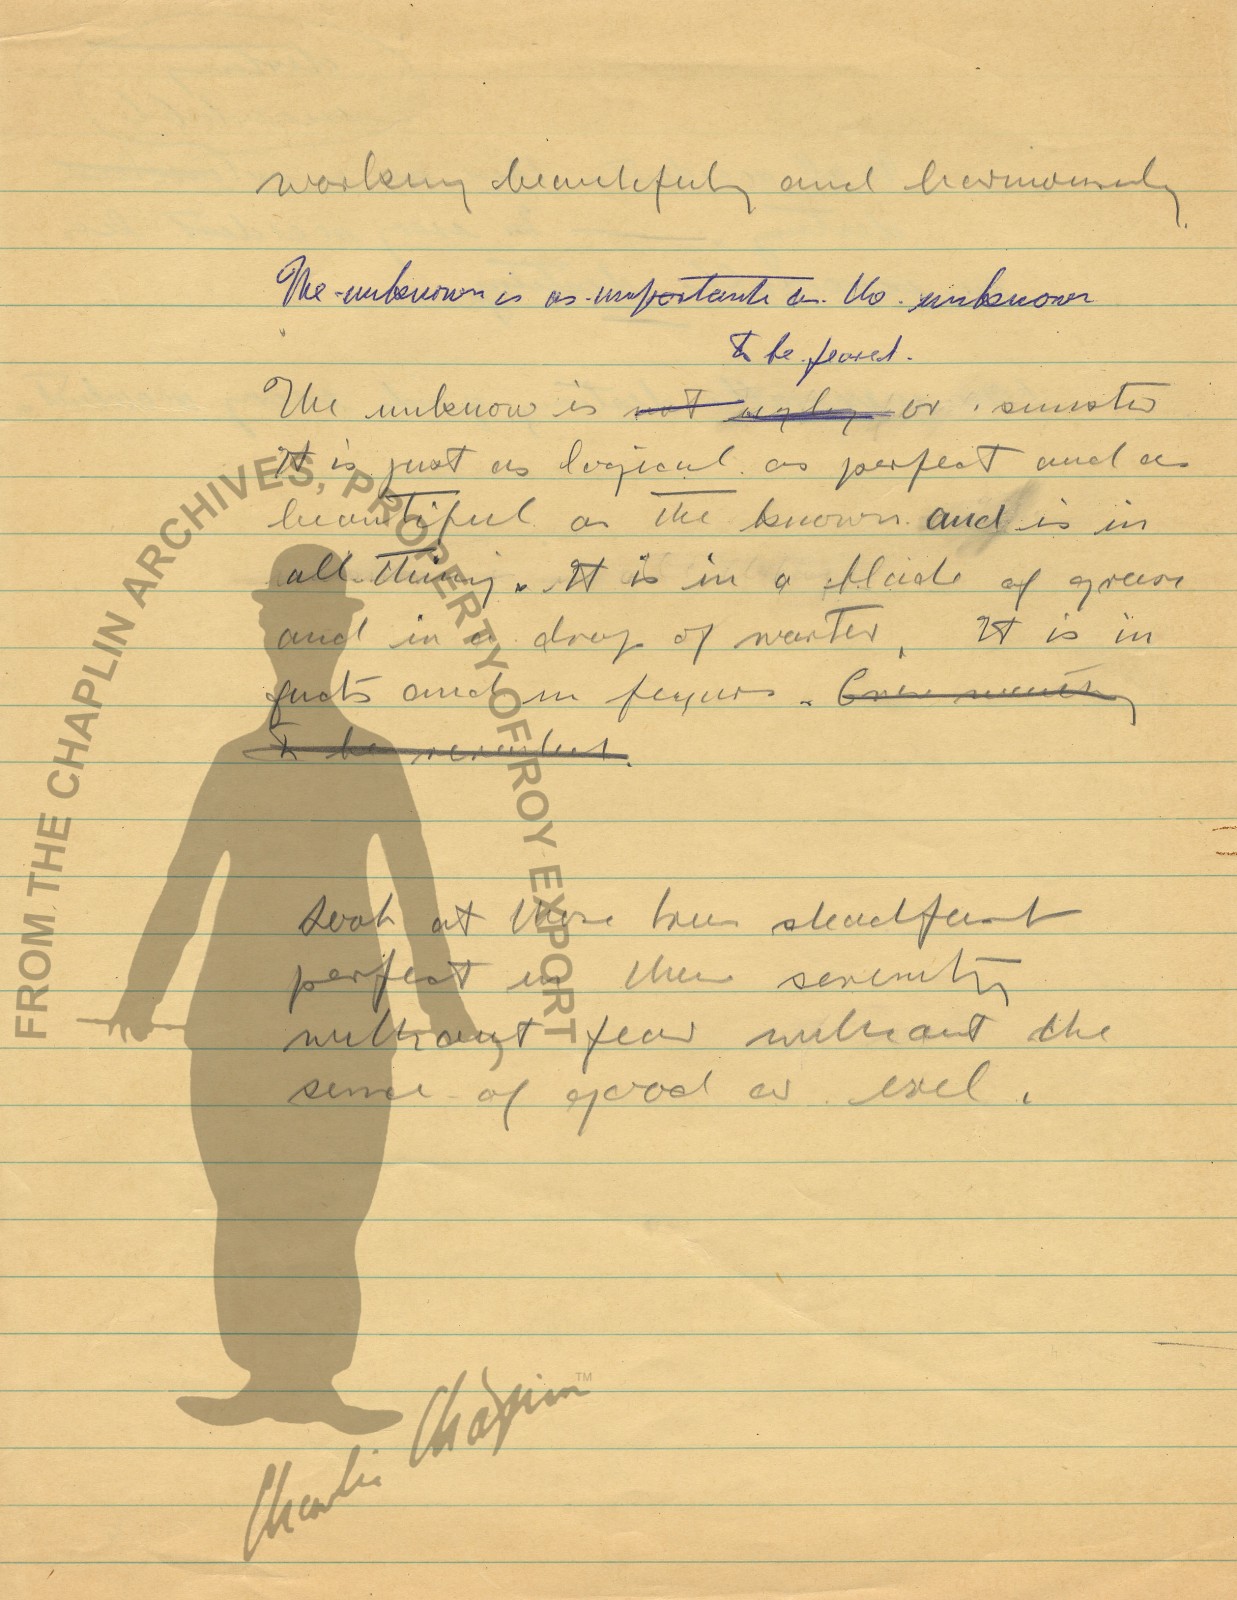 working beautifully and harmoniously
The unknown is as important as the unknown
to be feared.
The unknow is not ugly or sinister
It is just as logical as perfect and as
beautiful as the known and is in
all things. It is in a blade of grass
and in a drop of warter, It is in
facts and in figures.
to be revealed.
Look at those trees steadfast
perfect in their serenity
without fear without the
sense of good or evel.
FROM THE CHAPLIN ARCHIVES, PROPERTY OF ROY EXPORT
Charlie Chaplin™